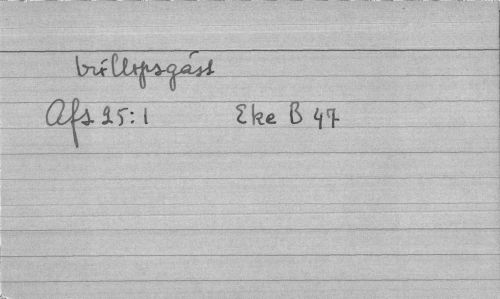 bröllopsgäst
Afs 25:1 Eke B 47